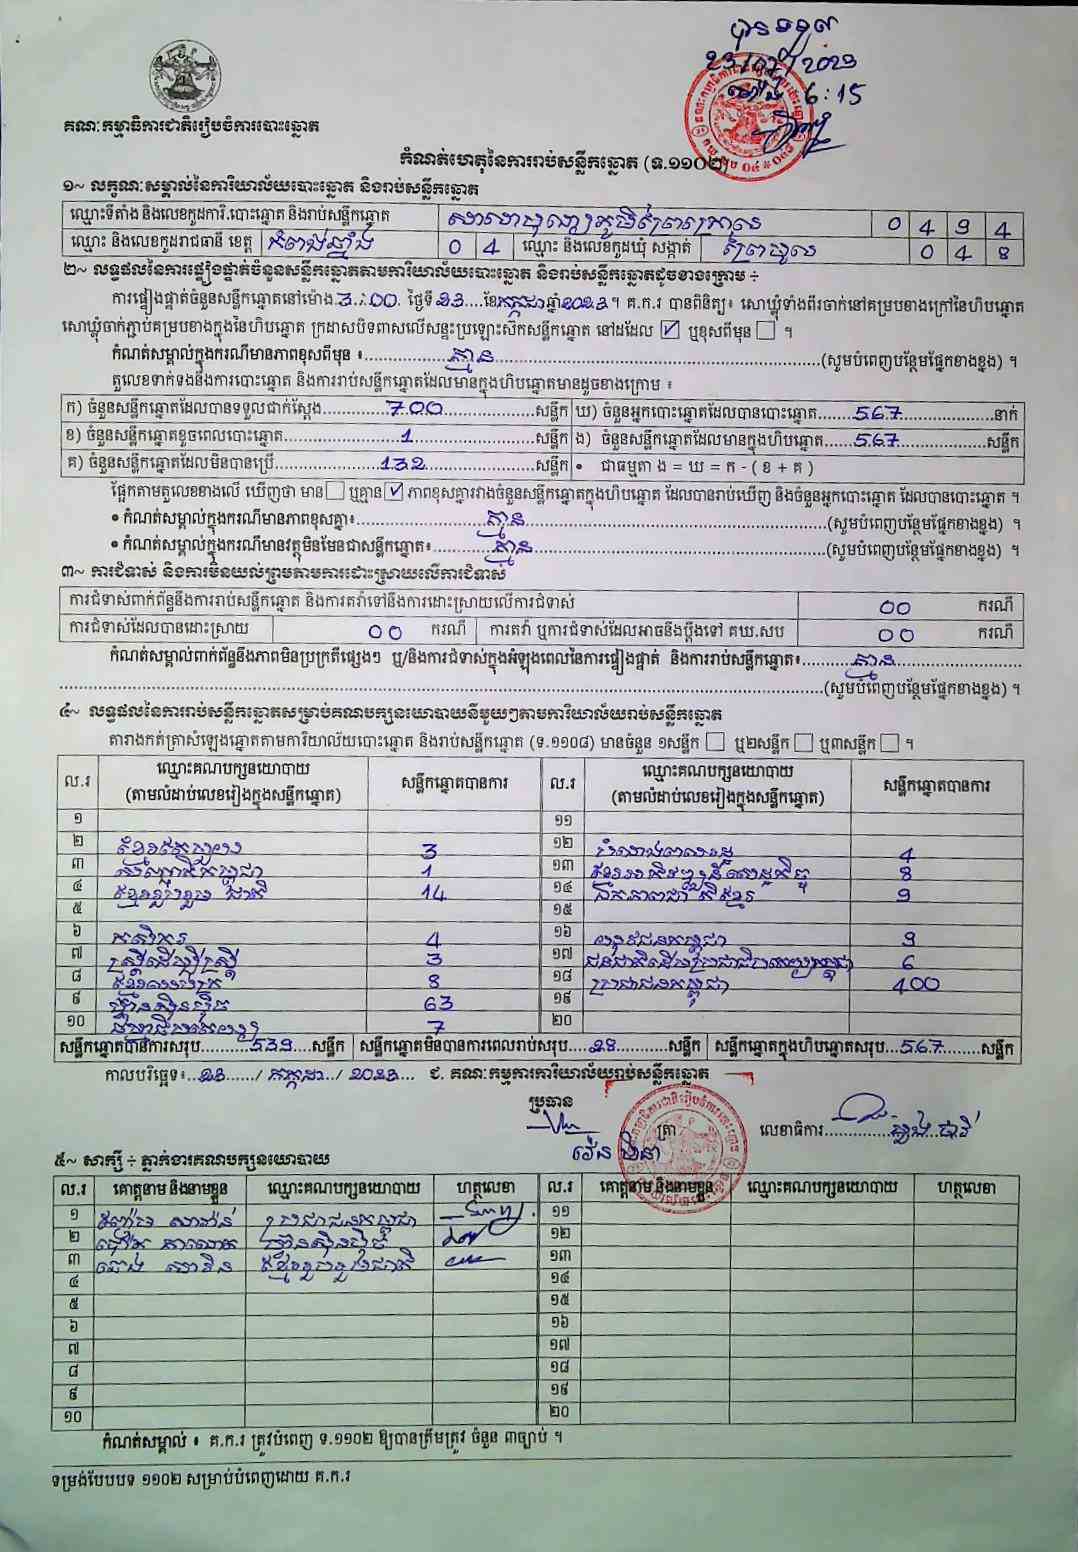 បានទទួល
23/07/2023
ម៉ោង 6:15
គណៈកម្មាធិការជាតិរៀបចំការបោះឆ្នោត
កំណត់ហេតុនៃការរាប់សន្លឹកឆ្នោត (ទ.១១០២)
១~ លក្ខណៈសម្គាល់នៃការិយាល័យបោះឆ្នោត និងរាប់សន្លឹកឆ្នោត
ឈ្មោះទីតាំង និងលេខកូដការិ.បោះឆ្នោត និងរាប់សន្លឹកឆ្នោត 0 4 9 4
ឈ្មោះ និងលេខកូដរាជធានី ខេត្ត កំពង់ឆ្នាំង 0 4 ឈ្មោះ និងលេខកូដឃុំ សង្កាត់ ព្រៃមូល 0 4 8
២~ លទ្ធផលនៃការផ្ទៀងផ្ទាត់ចំនួនសន្លឹកឆ្នោតតាមការិយាល័យបោះឆ្នោត និងរាប់សន្លឹកឆ្នោតដូចខាងក្រោម ÷
ការផ្ទៀងផ្ទាត់ចំនួនសន្លឹកឆ្នោតនៅម៉ោង.3.:00. ថ្ងៃទី23....ខែកក្កដាឆ្នាំ2023។ គ.ក.រ បានពិនិត្យ៖ សោឃ្លុំទាំងពីរចាក់នៅគម្របខាងក្រៅនៃហិបឆ្នោត
សោឃ្លុំចាក់ភ្ជាប់គម្របខាងក្នុងនៃហិបឆ្នោត ក្រដាសបិទពាសលើសន្ទះប្រឡោះស៊កសន្លឹកឆ្នោត នៅដដែល ☑ ឬខុសពីមុន ☐ ។
កំណត់សម្គាល់ក្នុងករណីមានភាពខុសពីមុន ៖......គ្មាន......(សូមបំពេញបន្ថែមផ្នែកខាងខ្នង) ។
តួលេខទាក់ទងនឹងការបោះឆ្នោត និងការរាប់សន្លឹកឆ្នោតដែលមានក្នុងហិបឆ្នោតមានដូចខាងក្រោម ៖
ក) ចំនួនសន្លឹកឆ្នោតដែលបានទទួលជាក់ស្តែង......700......សន្លឹក ឃ) ចំនួនអ្នកបោះឆ្នោតដែលបានបោះឆ្នោត......567......នាក់
ខ) ចំនួនសន្លឹកឆ្នោតខូចពេលបោះឆ្នោត......1......សន្លឹក ង) ចំនួនសន្លឹកឆ្នោតដែលមានក្នុងហិបឆ្នោត......567......សន្លឹក
គ) ចំនួនសន្លឹកឆ្នោតដែលមិនបានប្រើ......132......សន្លឹក • ជាធម្មតា ង = ឃ = ក - ( ខ + គ )
ផ្អែកតាមតួលេខខាងលើ ឃើញថា មាន ☐ ឬគ្មាន ☑ ភាពខុសគ្នារវាងចំនួនសន្លឹកឆ្នោតក្នុងហិបឆ្នោត ដែលបានរាប់ឃើញ និងចំនួនអ្នកបោះឆ្នោត ដែលបានបោះឆ្នោត ។
• កំណត់សម្គាល់ក្នុងករណីមានភាពខុសគ្នា៖......គ្មាន......(សូមបំពេញបន្ថែមផ្នែកខាងខ្នង) ។
• កំណត់សម្គាល់ក្នុងករណីមានវត្ថុមិនមែនជាសន្លឹកឆ្នោត៖......គ្មាន......(សូមបំពេញបន្ថែមផ្នែកខាងខ្នង) ។
៣~ ការជំទាស់ និងការមិនយល់ព្រមតាមការដោះស្រាយលើការជំទាស់
ការជំទាស់ពាក់ព័ន្ធនឹងការរាប់សន្លឹកឆ្នោត និងការតវ៉ាទៅនឹងការដោះស្រាយលើការជំទាស់ 00 ករណី
ការជំទាស់ដែលបានដោះស្រាយ 00 ករណី ការតវ៉ា ឬការជំទាស់ដែលអាចនឹងប្តឹងទៅ គឃ.សប 00 ករណី
កំណត់សម្គាល់ពាក់ព័ន្ធនឹងភាពមិនប្រក្រតីផ្សេងៗ ឬ/និងការជំទាស់ក្នុងអំឡុងពេលនៃការផ្ទៀងផ្ទាត់ និងការរាប់សន្លឹកឆ្នោត៖......គ្មាន......
......(សូមបំពេញបន្ថែមផ្នែកខាងខ្នង) ។
៤~ លទ្ធផលនៃការរាប់សន្លឹកឆ្នោតសម្រាប់គណបក្សនយោបាយនីមួយៗតាមការិយាល័យរាប់សន្លឹកឆ្នោត
តារាងកត់ត្រាសំឡេងឆ្នោតតាមការិយាល័យបោះឆ្នោត និងរាប់សន្លឹកឆ្នោត (ទ.១១០៨) មានចំនួន ១សន្លឹក ☐ ឬ២សន្លឹក ☐ ឬ៣សន្លឹក ☐ ។
ល.រ ឈ្មោះគណបក្សនយោបាយ (តាមលំដាប់លេខរៀងក្នុងសន្លឹកឆ្នោត) សន្លឹកឆ្នោតបានការ ល.រ ឈ្មោះគណបក្សនយោបាយ (តាមលំដាប់លេខរៀងក្នុងសន្លឹកឆ្នោត) សន្លឹកឆ្នោតបានការ
១ ១១
២ 3 ១២ 4
៣ 1 ១៣ ខ្មែរអភិវឌ្ឍន៍សេដ្ឋកិច្ច 8
៤ ខ្មែររួបរួមជាតិ 14 ១៤ ឯកភាពជាតិខ្មែរ 9
៥ ១៥
៦ កសិករ 4 ១៦ យុវជនកម្ពុជា 9
៧ ស្ត្រីដើម្បីស្ត្រី 3 ១៧ 6
៨ 8 ១៨ ប្រជាជនកម្ពុជា 400
៩ ហ្វ៊ុនស៊ិនប៉ិច 63 ១៩
១០ 7 ២០
សន្លឹកឆ្នោតបានការសរុប......539......សន្លឹក សន្លឹកឆ្នោតមិនបានការពេលរាប់សរុប....28......សន្លឹក សន្លឹកឆ្នោតក្នុងហិបឆ្នោតសរុប...567......សន្លឹក
កាលបរិច្ឆេទ៖..23....../ កក្កដា.../ 2023... ជ. គណៈកម្មការការិយាល័យរាប់សន្លឹកឆ្នោត
ប្រធាន
ត្រា
លេខាធិការ
៥~ សាក្សី ÷ ភ្នាក់ងារគណបក្សនយោបាយ
ល.រ គោត្តនាម និងនាមខ្លួន ឈ្មោះគណបក្សនយោបាយ ហត្ថលេខា ល.រ គោត្តនាម និងនាមខ្លួន ឈ្មោះគណបក្សនយោបាយ ហត្ថលេខា
១ ប្រជាជនកម្ពុជា ១១
២ ហ្វ៊ុនស៊ិនប៉ិច ១២
៣ ខ្មែររួបរួមជាតិ ១៣
៤ ១៤
៥ ១៥
៦ ១៦
៧ ១៧
៨ ១៨
៩ ១៩
១០ ២០
កំណត់សម្គាល់ ៖ គ.ក.រ ត្រូវបំពេញ ទ.១១០២ ឱ្យបានត្រឹមត្រូវ ចំនួន ៣ច្បាប់ ។
ទម្រង់បែបបទ ១១០២ សម្រាប់បំពេញដោយ គ.ក.រ